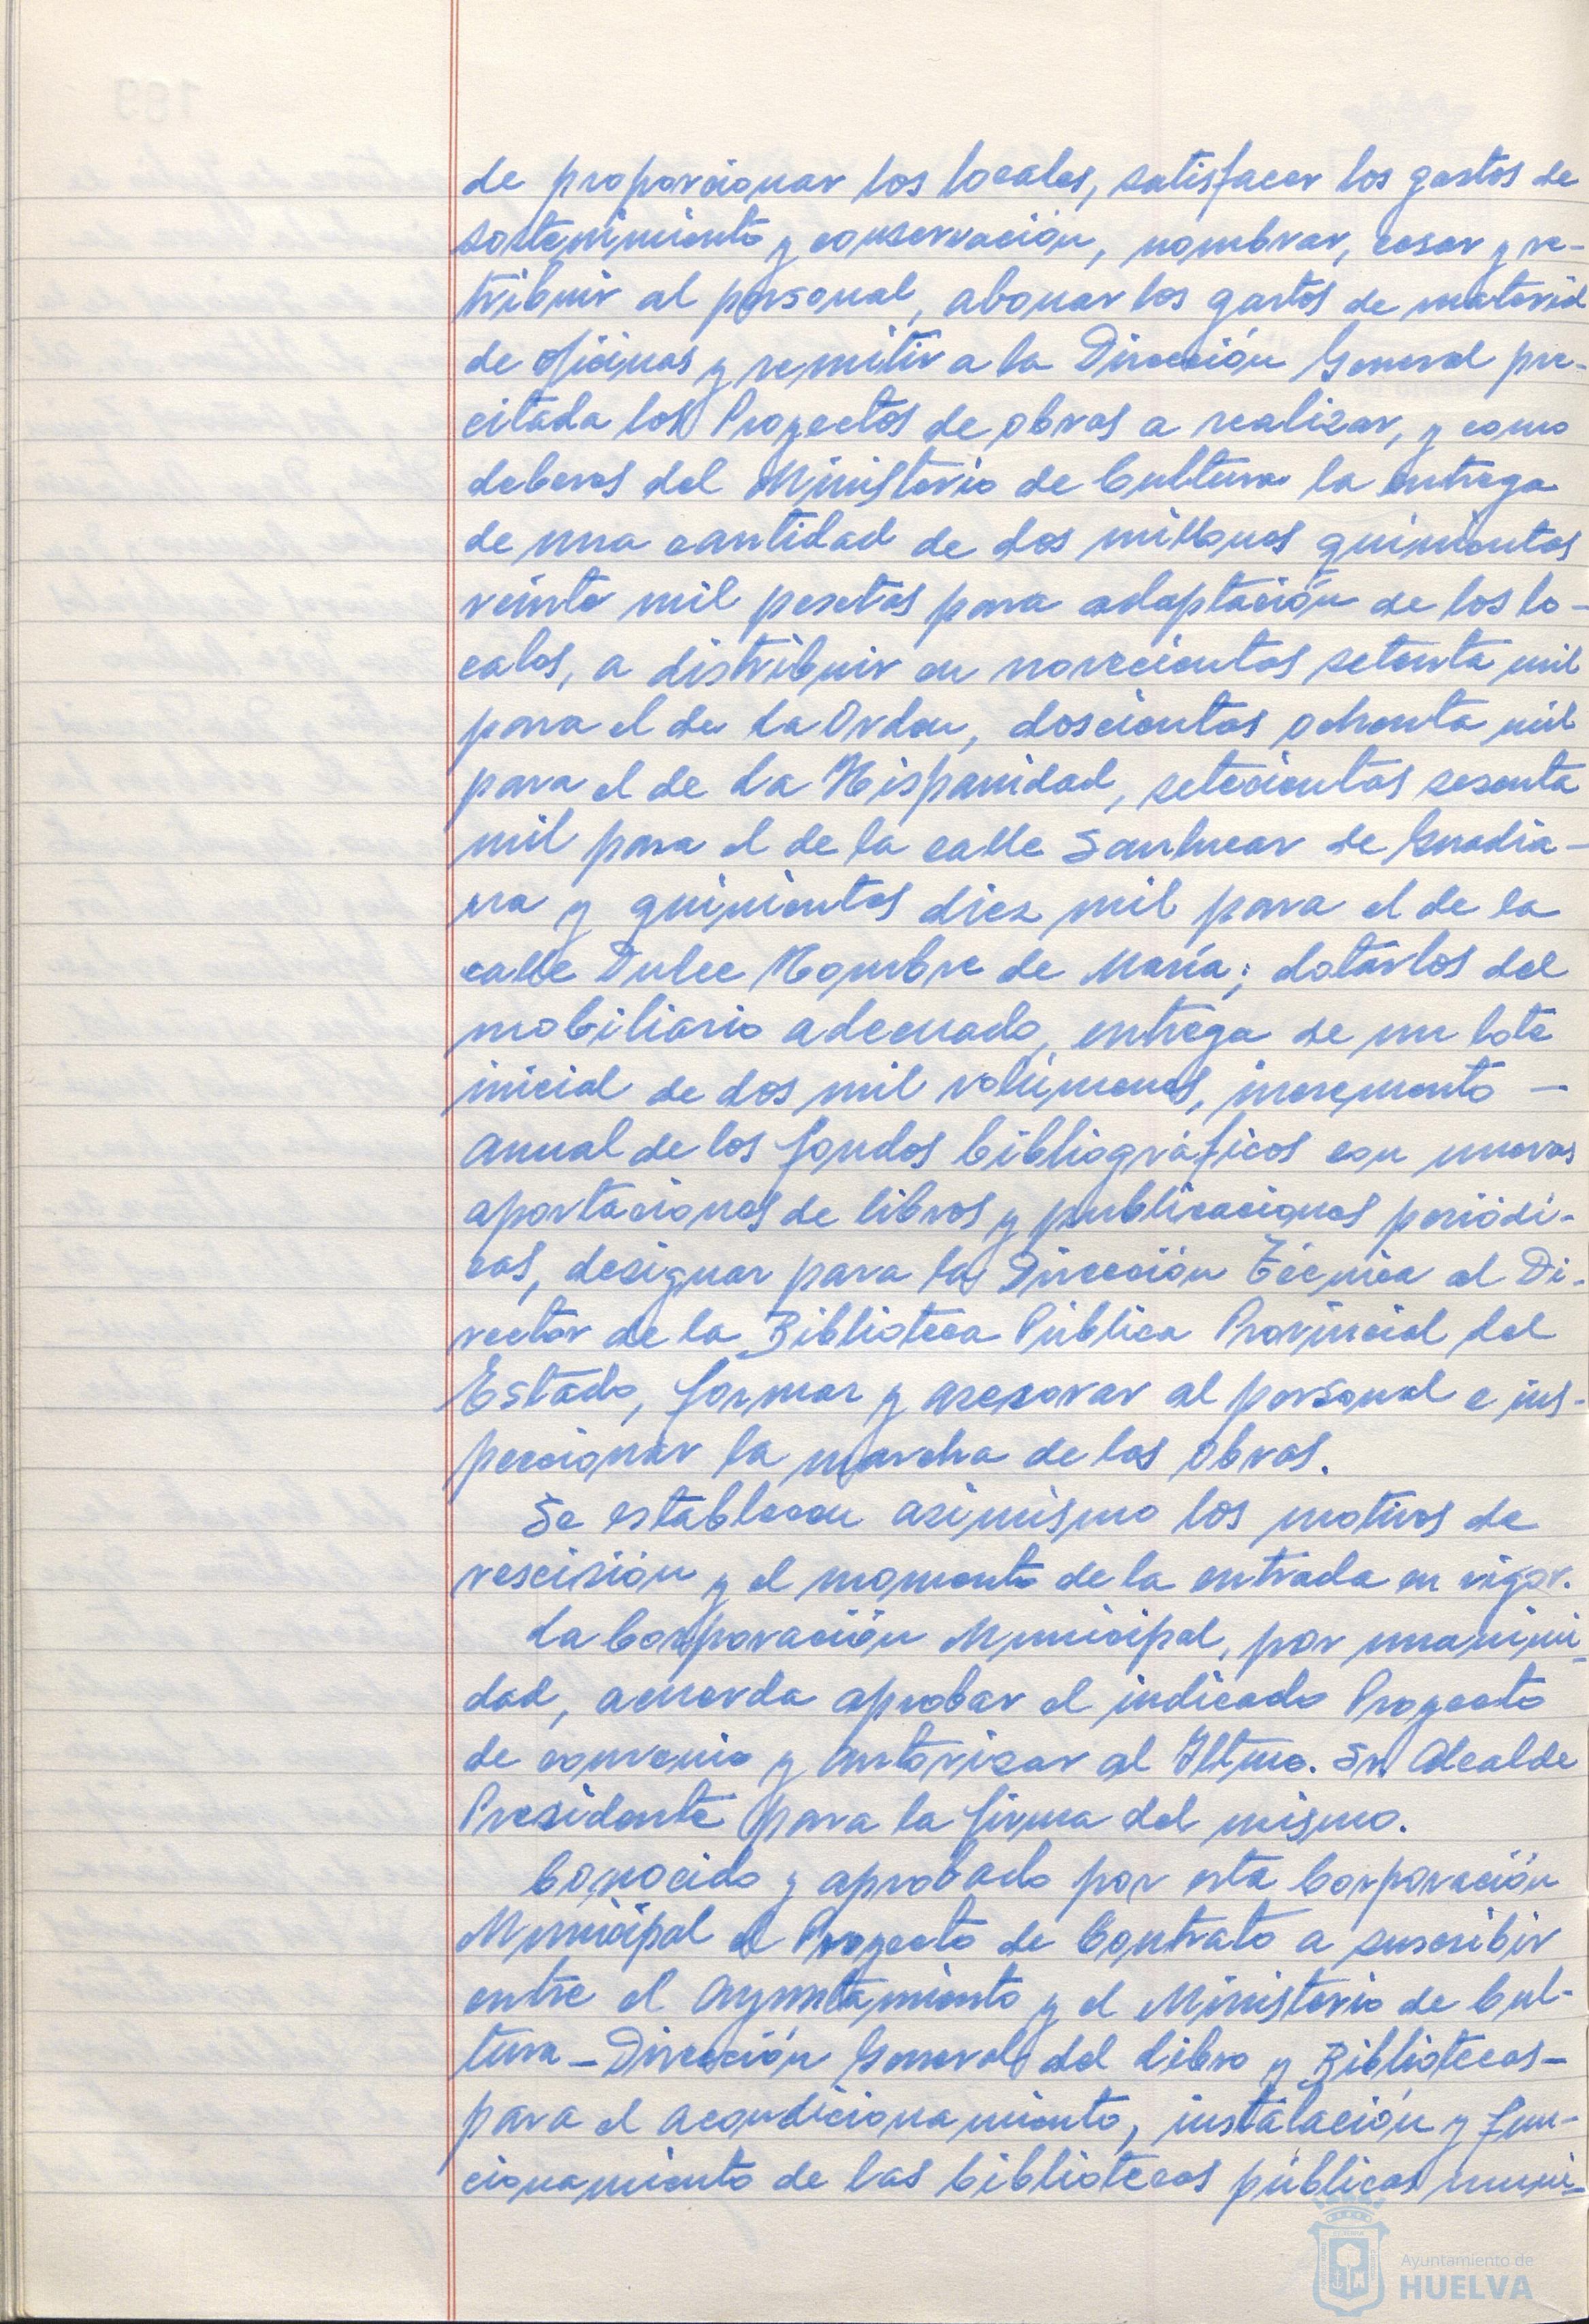 de proporcionar los locales, satisfacer los gastos de
sostenimiento y conservación, nombrar, cesar y re-
tribuir al personal, abonar los gastos de material
de oficinas y remitir a la Dirección General pre-
citada los Proyectos de obras a realizar, y como
deberes del Ministerio de Cultura la entrega
de una cantidad de dos millones quinientas
veinte mil pesetas para adaptación de los lo-
cales, a distribuir en novecientas setenta mil
para el de La Orden, doscientas ochenta mil
para el de La Hispanidad, setecientas sesenta
mil para el de la calle Sanlucar de Guadia-
na y quinientas diez mil para el de la
calle Dulce Nombre de María; dotarlos del
mobiliario adecuado, entrega de un lote
inicial de dos mil volúmenes, incremento -
anual de los fondos bibliográficos con nuevas
aportaciones de libros y publicaciones periódi-
cas, designar para la Dirección Técnica al Di-
rector de la Biblioteca Pública Provincial del
Estado, formar y asesorar al personal e ins-
peccionar la marcha de las obras.
Se establecen asimismo los motivos de
rescisión y el momento de la entrada en vigor.
La Corporación Municipal, por unanimi-
dad, acuerda aprobar el indicado Proyecto
de convenio y autorizar al Iltmo. Sr. Alcalde
Presidente para la firma del mismo.
Conocido y aprobado por esta Corporación
Municipal el Proyecto de Contrato a suscribir
entre el Ayuntamiento y el Ministerio de Cul-
tura -Dirección General del Libro y Bibliotecas-
para el acondicionamiento, instalación y fun-
cionamiento de las bibliotecas públicas muni-
Ayuntamiento de
HUELVA